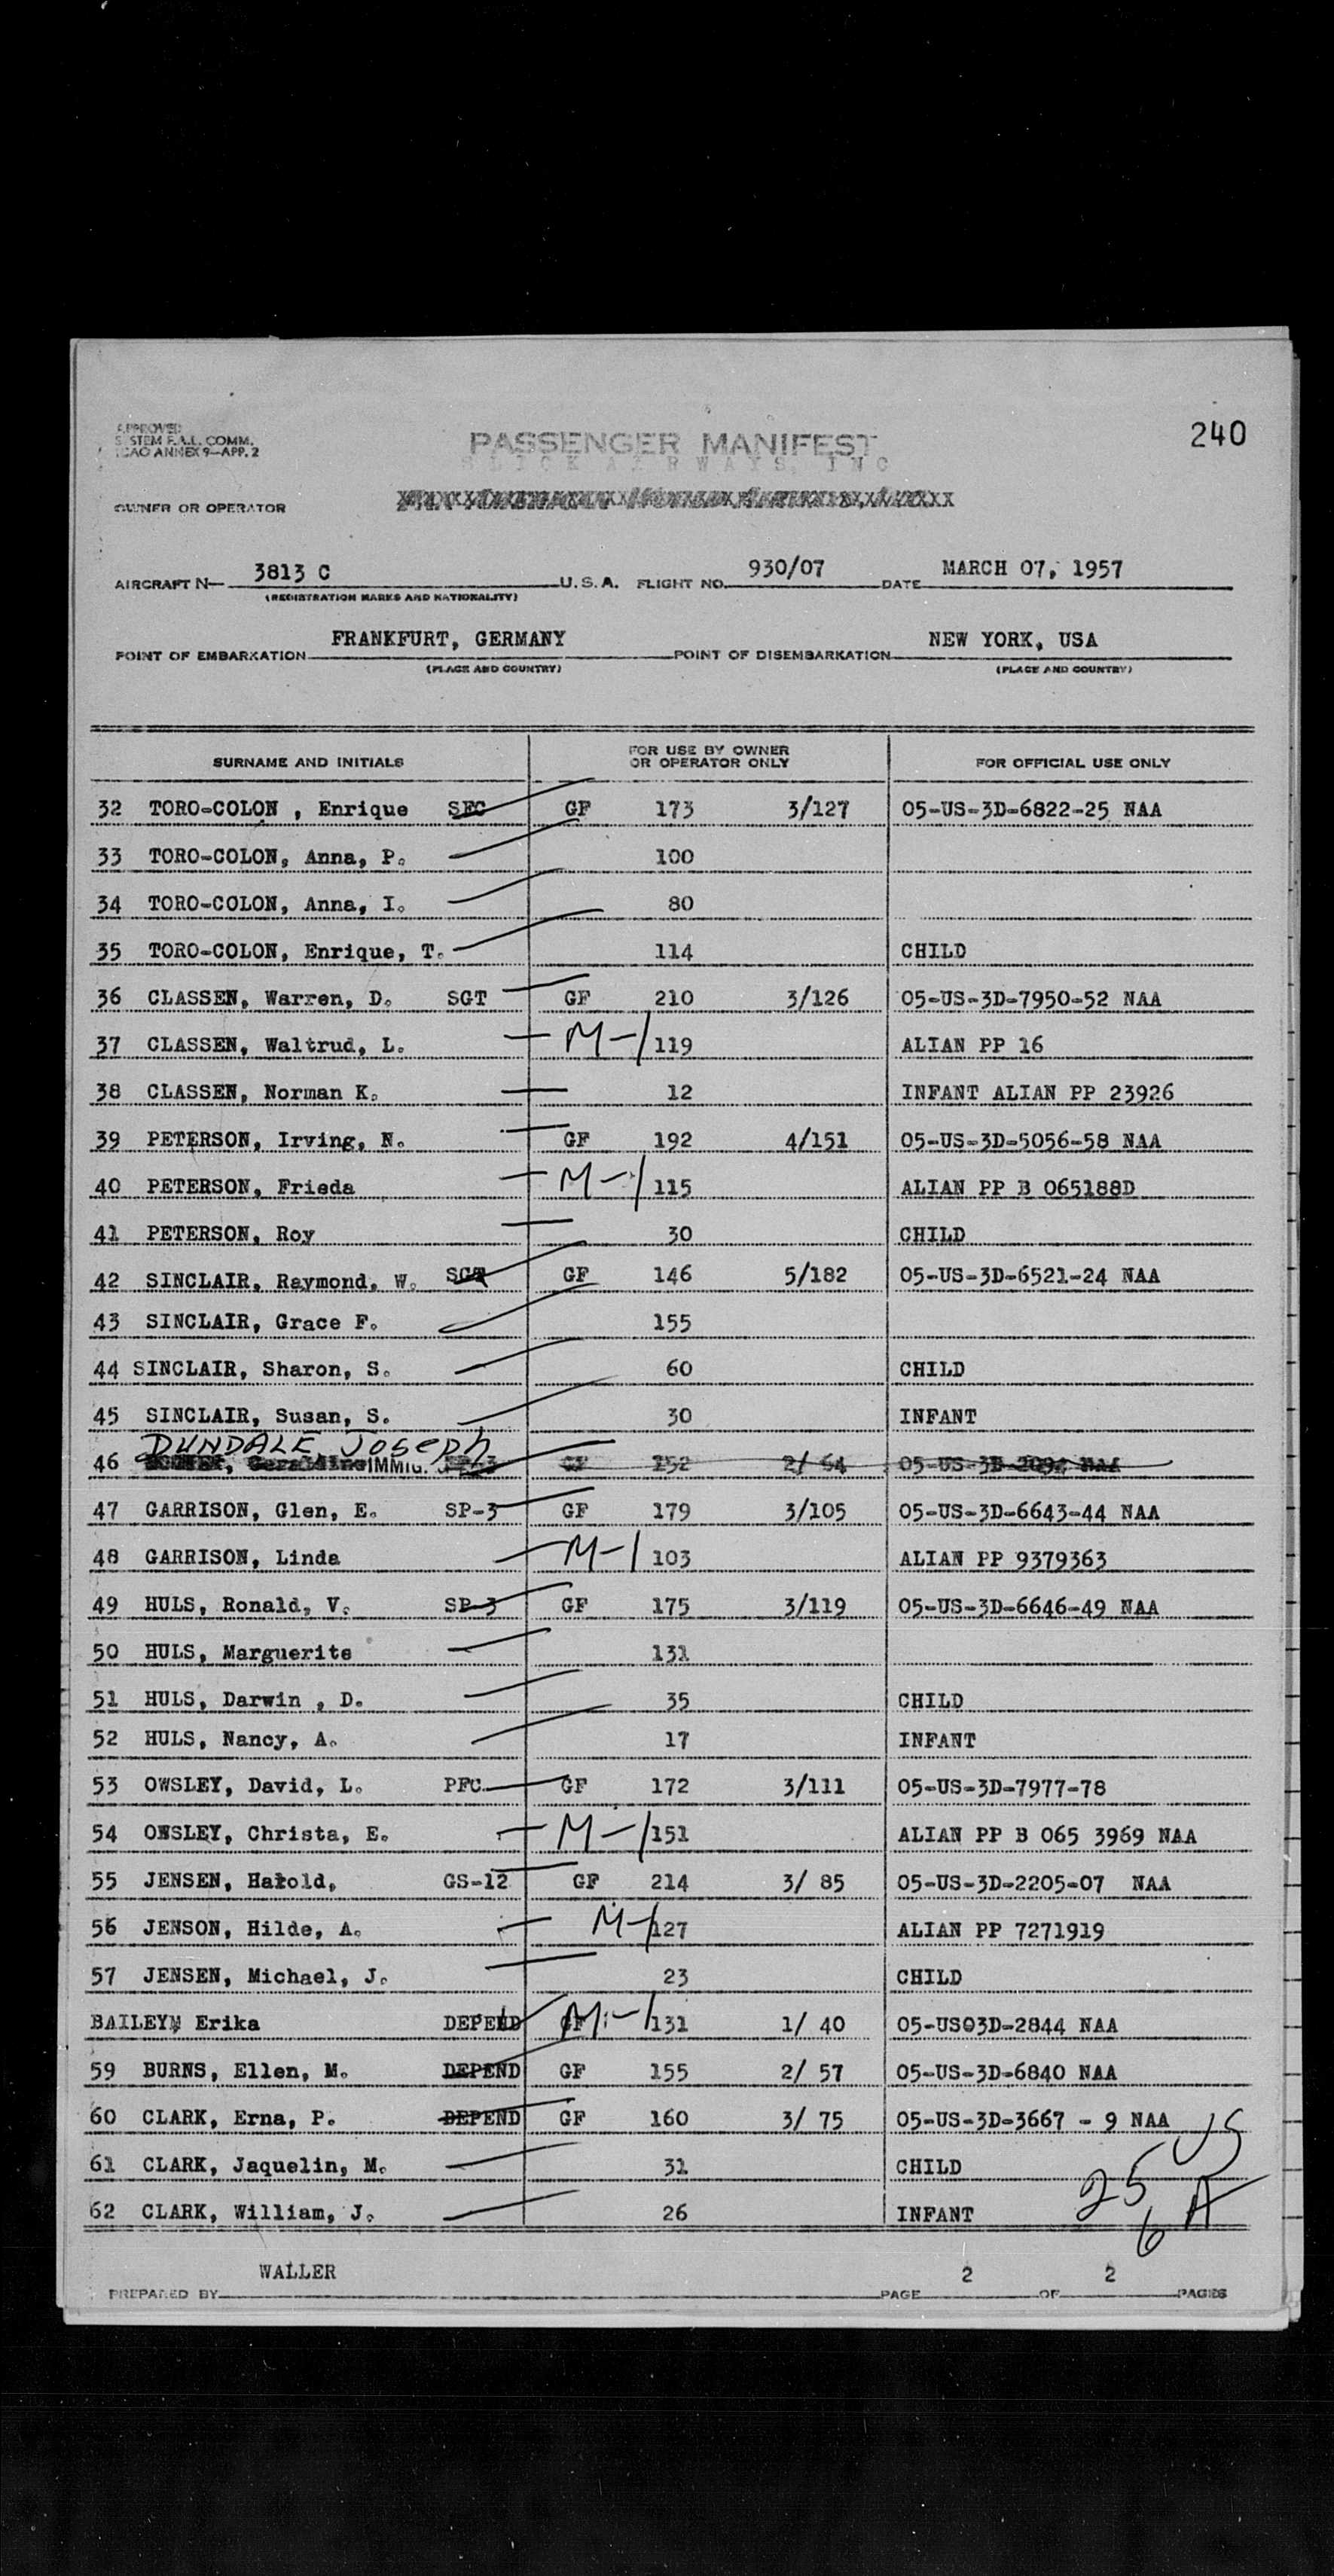 240
APPROVED
SYSTEM F.A.L. COMM.
ICAO ANNEX 9—APP. 2
PASSENGER MANIFEST
SLICK AIRWAYS, INC
OWNER OR OPERATOR
AIRCRAFT N— 3813 C U.S.A. FLIGHT NO. 930/07 DATE MARCH 07, 1957
(REGISTRATION MARKS AND NATIONALITY)
POINT OF EMBARKATION FRANKFURT, GERMANY POINT OF DISEMBARKATION NEW YORK, USA
(PLACE AND COUNTRY) (PLACE AND COUNTRY)
SURNAME AND INITIALS FOR USE BY OWNER OR OPERATOR ONLY FOR OFFICIAL USE ONLY
32 TORO-COLON , Enrique SFC GF 173 3/127 05-US-3D-6822-25 NAA
33 TORO-COLON, Anna, P. 100
34 TORO-COLON, Anna, I. 80
35 TORO-COLON, Enrique, T. 114 CHILD
36 CLASSEN, Warren, D. SGT GF 210 3/126 05-US-3D-7950-52 NAA
37 CLASSEN, Waltrud, L. M-1 119 ALIAN PP 16
38 CLASSEN, Norman K. 12 INFANT ALIAN PP 23926
39 PETERSON, Irving, N. GF 192 4/151 05-US-3D-5056-58 NAA
40 PETERSON, Frieda M-1 115 ALIAN PP B 065188D
41 PETERSON, Roy 30 CHILD
42 SINCLAIR, Raymond, W. SGT GF 146 5/182 05-US-3D-6521-24 NAA
43 SINCLAIR, Grace F. 155
44 SINCLAIR, Sharon, S. 60 CHILD
45 SINCLAIR, Susan, S. 30 INFANT
DUNDALE, Joseph
46 Geraldine IMMIG. GF 152 2/ 64 05-US-3D NAA
47 GARRISON, Glen, E. SP-3 GF 179 3/105 05-US-3D-6643-44 NAA
48 GARRISON, Linda M-1 103 ALIAN PP 9379363
49 HULS, Ronald, V. SP-3 GF 175 3/119 05-US-3D-6646-49 NAA
50 HULS, Marguerite 131
51 HULS, Darwin , D. 35 CHILD
52 HULS, Nancy, A. 17 INFANT
53 OWSLEY, David, L. PFC GF 172 3/111 05-US-3D-7977-78
54 OWSLEY, Christa, E. M-1 151 ALIAN PP B 065 3969 NAA
55 JENSEN, Harold, GS-12 GF 214 3/ 85 05-US-3D-2205-07 NAA
56 JENSON, Hilde, A. M-1 127 ALIAN PP 7271919
57 JENSEN, Michael, J. 23 CHILD
BAILEYM Erika DEPEND GF M-1 131 1/ 40 05-US03D-2844 NAA
59 BURNS, Ellen, M. DEPEND GF 155 2/ 57 05-US-3D-6840 NAA
60 CLARK, Erna, P. DEPEND GF 160 3/ 75 05-US-3D-3667 - 9 NAA
61 CLARK, Jaquelin, M. 31 CHILD 25 US
62 CLARK, William, J. 26 INFANT 6 A
PREPARED BY WALLER PAGE 2 OF 2 PAGES